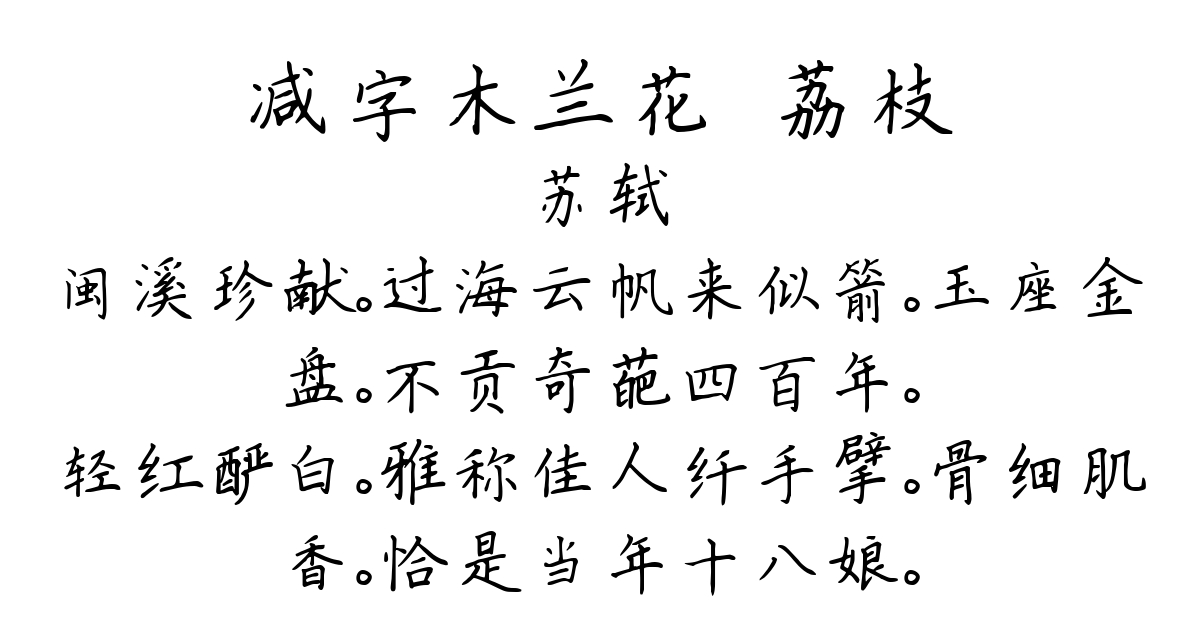 减字木兰花 荔枝
苏轼
闽溪珍献。过海云帆来似箭。玉座金
盘。不贡奇葩四百年。
轻红酽白。雅称佳人纤手擘。骨细肌
香。恰是当年十八娘。